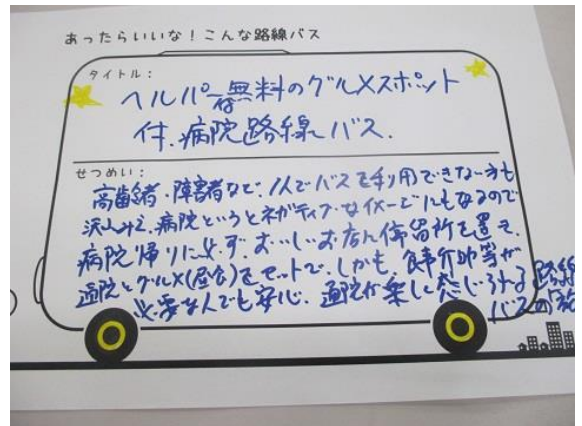 あったらいいな！こんな路線バス
タイトル：
ヘルパー無料のグルメスポット
付.病院路線バス.
せつめい：
高齢者.障害者など.1人でバスを利用できない方も
沢山みえ.病院というとネガティブなイメージにもなるので
病院帰りに必ず.おいしいお店に停留所を置き.
通院とグルメ(昼食)をセットで.しかも.食事介助等が
必要な人でも安心.通院が楽しく感じられる路線
バスの